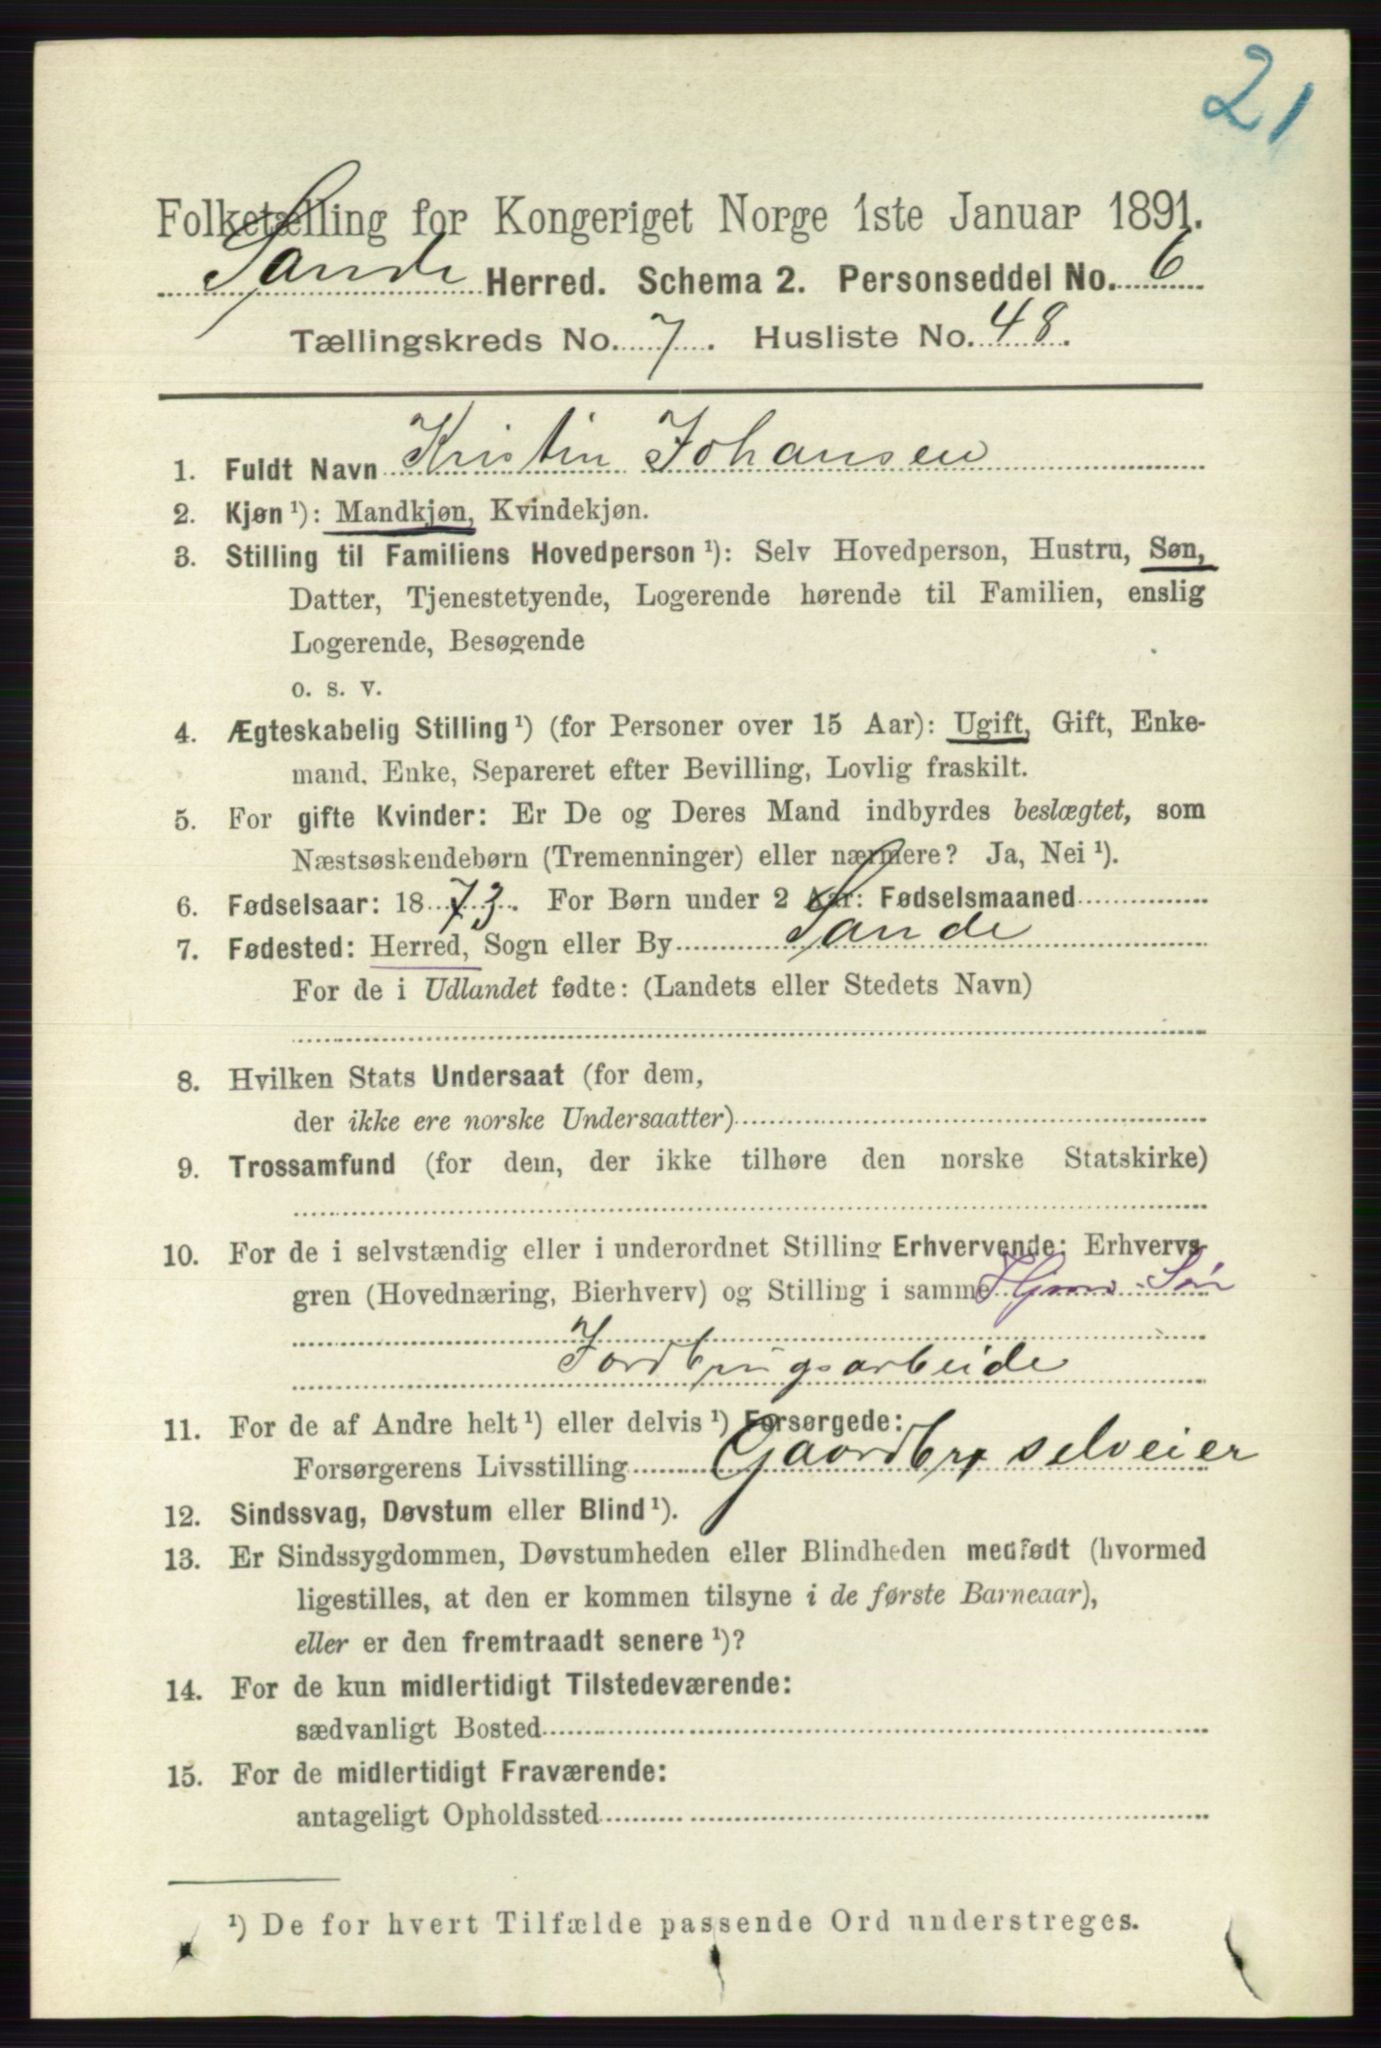 21
Folketælling for Kongeriget Norge 1ste Januar 1891.
Sande Herred. Schema 2. Personseddel No. 6
Tællingskreds No. 7. Husliste No. 48.
1. Fuldt Navn Kristin Johansen
2. Kjøn ¹): Mandkjøn, Kvindekjøn.
3. Stilling til Familiens Hovedperson ¹): Selv Hovedperson, Hustru, Søn,
Datter, Tjenestetyende, Logerende hørende til Familien, enslig
Logerende, Besøgende
o. s. v.
4. Ægteskabelig Stilling ¹) (for Personer over 15 Aar): Ugift, Gift, Enke-
mand, Enke, Separeret efter Bevilling, Lovlig fraskilt.
5. For gifte Kvinder: Er De og Deres Mand indbyrdes beslægtet, som
Næstsøskendebørn (Tremenninger) eller nærmere? Ja, Nei ¹).
6. Fødselsaar: 1873. For Børn under 2 Aar: Fødselsmaaned
7. Fødested: Herred, Sogn eller By Sande
For de i Udlandet fødte: (Landets eller Stedets Navn)
8. Hvilken Stats Undersaat (for dem,
der ikke ere norske Undersaatter)
9. Trossamfund (for dem, der ikke tilhøre den norske Statskirke)
10. For de i selvstændig eller i underordnet Stilling Erhvervende: Erhvervs-
gren (Hovednæring, Bierhverv) og Stilling i samme Hjms. Søn
Jordbrugsarbeide
11. For de af Andre helt ¹) eller delvis ¹) Forsørgede:
Forsørgerens Livsstilling Gaardbr selveier
12. Sindssvag, Døvstum eller Blind ¹).
13. Er Sindssygdommen, Døvstumheden eller Blindheden medfødt (hvormed
ligestilles, at den er kommen tilsyne i de første Barneaar),
eller er den fremtraadt senere ¹)?
14. For de kun midlertidigt Tilstedeværende:
sædvanligt Bosted
15. For de midlertidigt Fraværende:
antageligt Opholdssted
¹) De for hvert Tilfælde passende Ord understreges.